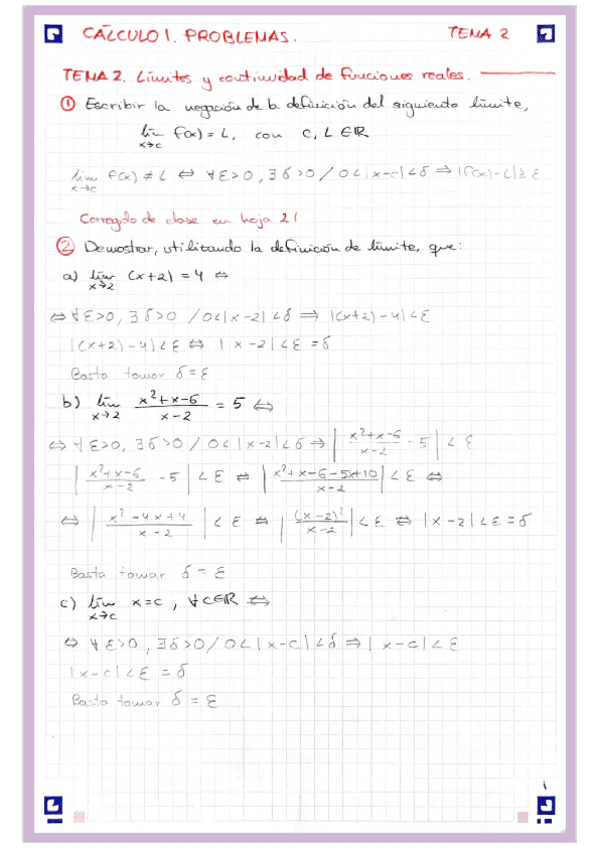 CÁLCULO I. PROBLEMAS. TEMA 2
TEMA 2. Límites y continuidad de funciones reales.
① Escribir la negación de la definición del siguiente límite,
lim x→c f(x) = L, con c, L ∈ ℝ
lim x→c f(x) ≠ L ⇔ ∀ε>0, ∃δ>0 / 0<|x-c|<δ ⇒ |f(x)-L|≥ε
Corregido de clase en hoja 21
② Demostrar, utilizando la definición de límite, que:
a) lim x→2 (x+2) = 4 ⇔
⇔ ∀ε>0, ∃δ>0 / 0<|x-2|<δ ⇒ |(x+2)-4|<ε
|(x+2)-4|<ε ⇔ |x-2|<ε = δ
Basta tomar δ=ε
b) lim x→2 (x²+x-6)/(x-2) = 5 ⇔
⇔ ∀ε>0, ∃δ>0 / 0<|x-2|<δ ⇒ |(x²+x-6)/(x-2) - 5| < ε
|(x²+x-6)/(x-2) - 5| < ε ⇔ |(x²+x-6-5x+10)/(x-2)| < ε ⇔
⇔ |(x²-4x+4)/(x-2)| < ε ⇔ |(x-2)²/(x-2)| < ε ⇔ |x-2|<ε=δ
Basta tomar δ = ε
c) lim x→c x=c, ∀c∈ℝ ⇔
⇔ ∀ε>0, ∃δ>0 / 0<|x-c|<δ ⇒ |x-c|<ε
|x-c|<ε = δ
Basta tomar δ = ε
1